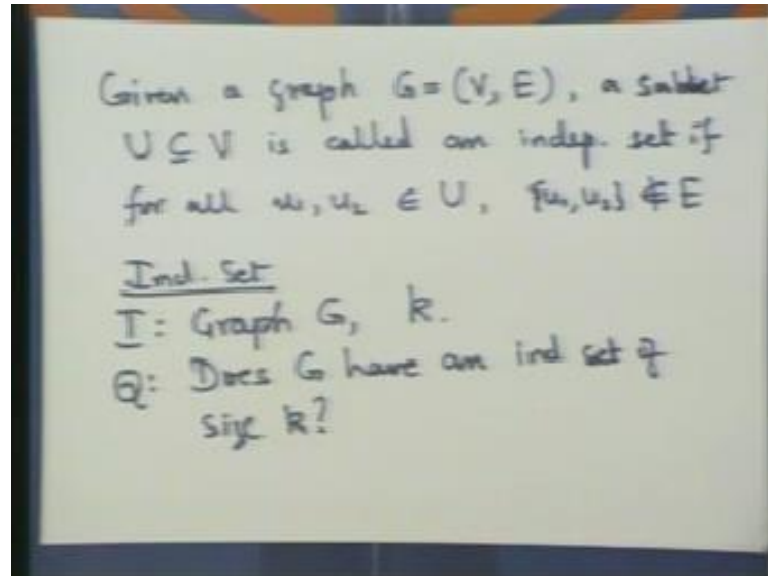 Given a graph G = (V, E), a subset
U ⊆ V is called an indep. set if
for all u₁, u₂ ∈ U, {u₁, u₂} ∉ E
Ind. Set
I: Graph G, k.
Q: Does G have an ind set of
size k?